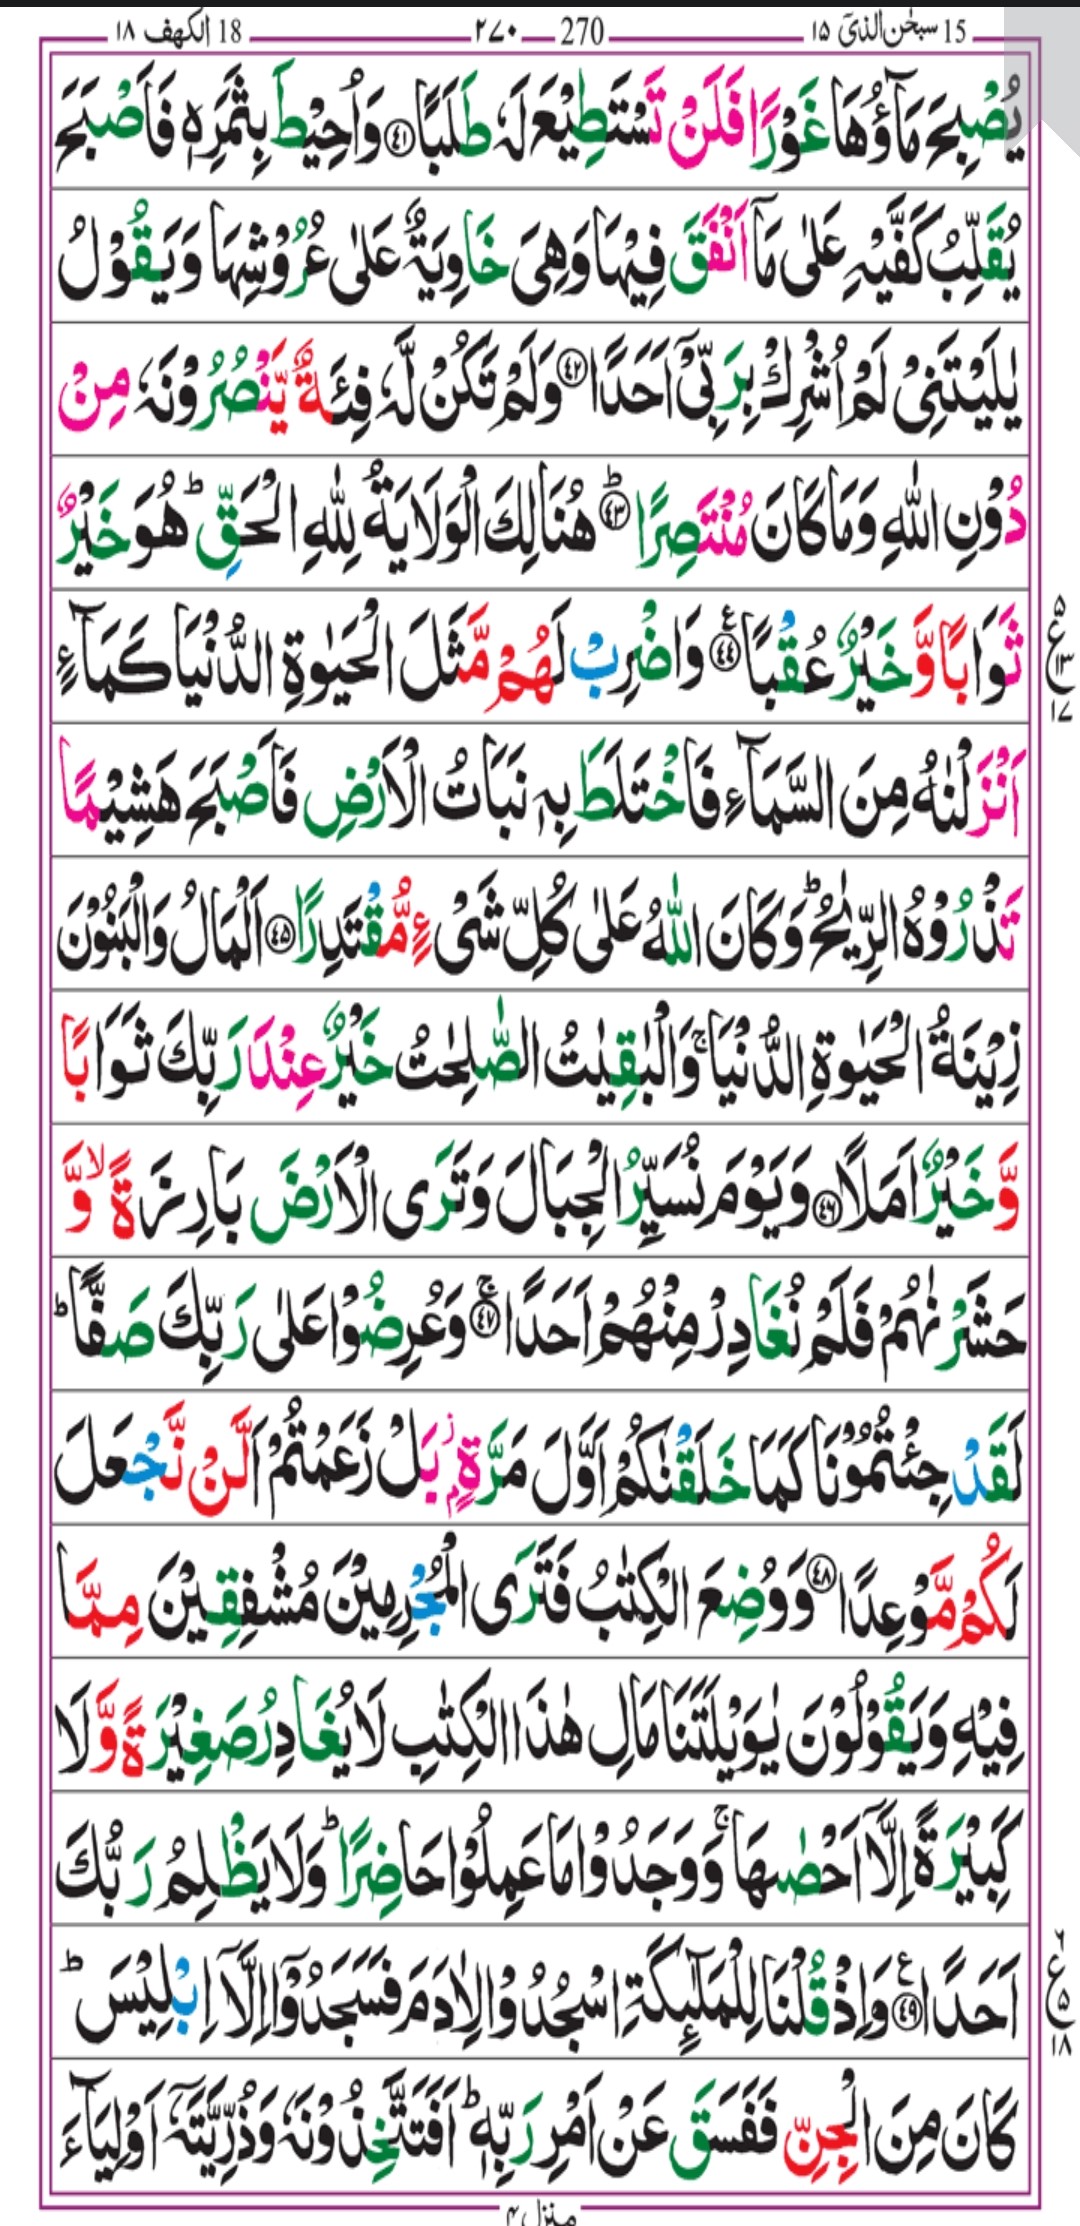 15 سبحٰن الذیٓ ۱۵ 270 ۲۷۰ 18 الکهف ۱۸
يُصْبِحَ مَآؤُهَا غَوْرًا فَلَنْ تَسْتَطِيْعَ لَهٗ طَلَبًا ﴿۴۱﴾ وَاُحِيْطَ بِثَمَرِهٖ فَاَصْبَحَ
يُقَلِّبُ كَفَّيْهِ عَلٰى مَآ اَنْفَقَ فِيْهَا وَهِىَ خَاوِيَةٌ عَلٰى عُرُوْشِهَا وَيَقُوْلُ
يٰلَيْتَنِىْ لَمْ اُشْرِكْ بِرَبِّىْٓ اَحَدًا ﴿۴۲﴾ وَلَمْ تَكُنْ لَّهٗ فِئَةٌ يَّنْصُرُوْنَهٗ مِنْ
دُوْنِ اللّٰهِ وَمَا كَانَ مُنْتَصِرًا ﴿۴۳﴾ؕ هُنَالِكَ الْوَلَايَةُ لِلّٰهِ الْحَقِّ ؕ هُوَ خَيْرٌ
ثَوَابًا وَّخَيْرٌ عُقْبًا ﴿۴۴﴾ ع وَاضْرِبْ لَهُمْ مَّثَلَ الْحَيٰوةِ الدُّنْيَا كَمَآءٍ
۵ ع ۱۳ ۱۷
اَنْزَلْنٰهُ مِنَ السَّمَآءِ فَاخْتَلَطَ بِهٖ نَبَاتُ الْاَرْضِ فَاَصْبَحَ هَشِيْمًا
تَذْرُوْهُ الرِّيٰحُ ؕ وَكَانَ اللّٰهُ عَلٰى كُلِّ شَىْءٍ مُّقْتَدِرًا ﴿۴۵﴾ اَلْمَالُ وَالْبَنُوْنَ
زِيْنَةُ الْحَيٰوةِ الدُّنْيَا ۚ وَالْبٰقِيٰتُ الصّٰلِحٰتُ خَيْرٌ عِنْدَ رَبِّكَ ثَوَابًا
وَّخَيْرٌ اَمَلًا ﴿۴۶﴾ وَيَوْمَ نُسَيِّرُ الْجِبَالَ وَتَرَى الْاَرْضَ بَارِزَةً ۙ وَّ
حَشَرْنٰهُمْ فَلَمْ نُغَادِرْ مِنْهُمْ اَحَدًا ﴿۴۷﴾ۚ وَعُرِضُوْا عَلٰى رَبِّكَ صَفًّا ؕ
لَقَدْ جِئْتُمُوْنَا كَمَا خَلَقْنٰكُمْ اَوَّلَ مَرَّةٍۭ ز بَلْ زَعَمْتُمْ اَلَّنْ نَّجْعَلَ
لَكُمْ مَّوْعِدًا ﴿۴۸﴾ وَوُضِعَ الْكِتٰبُ فَتَرَى الْمُجْرِمِيْنَ مُشْفِقِيْنَ مِمَّا
فِيْهِ وَيَقُوْلُوْنَ يٰوَيْلَتَنَا مَالِ هٰذَا الْكِتٰبِ لَا يُغَادِرُ صَغِيْرَةً وَّلَا
كَبِيْرَةً اِلَّآ اَحْصٰىهَا ۚ وَوَجَدُوْا مَا عَمِلُوْا حَاضِرًا ؕ وَلَا يَظْلِمُ رَبُّكَ
اَحَدًا ﴿۴۹﴾ ع وَاِذْ قُلْنَا لِلْمَلٰٓئِكَةِ اسْجُدُوْا لِاٰدَمَ فَسَجَدُوْٓا اِلَّآ اِبْلِيْسَ ؕ
۶ ع ۵ ۱۸
كَانَ مِنَ الْجِنِّ فَفَسَقَ عَنْ اَمْرِ رَبِّهٖ ؕ اَفَتَتَّخِذُوْنَهٗ وَذُرِّيَّتَهٗٓ اَوْلِيَآءَ
منزل ۴